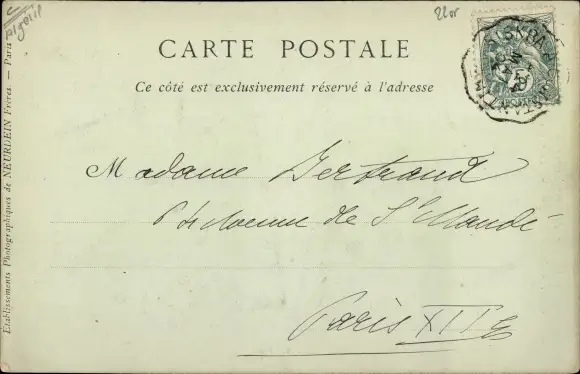 Algérie
CARTE POSTALE
Ce côté est exclusivement réservé à l'adresse
Madame Bertrand
Avenue de St Mandé
Paris XIIe
Etablissements Photographiques de NEURDEIN Frères. — Paris
BISKRA